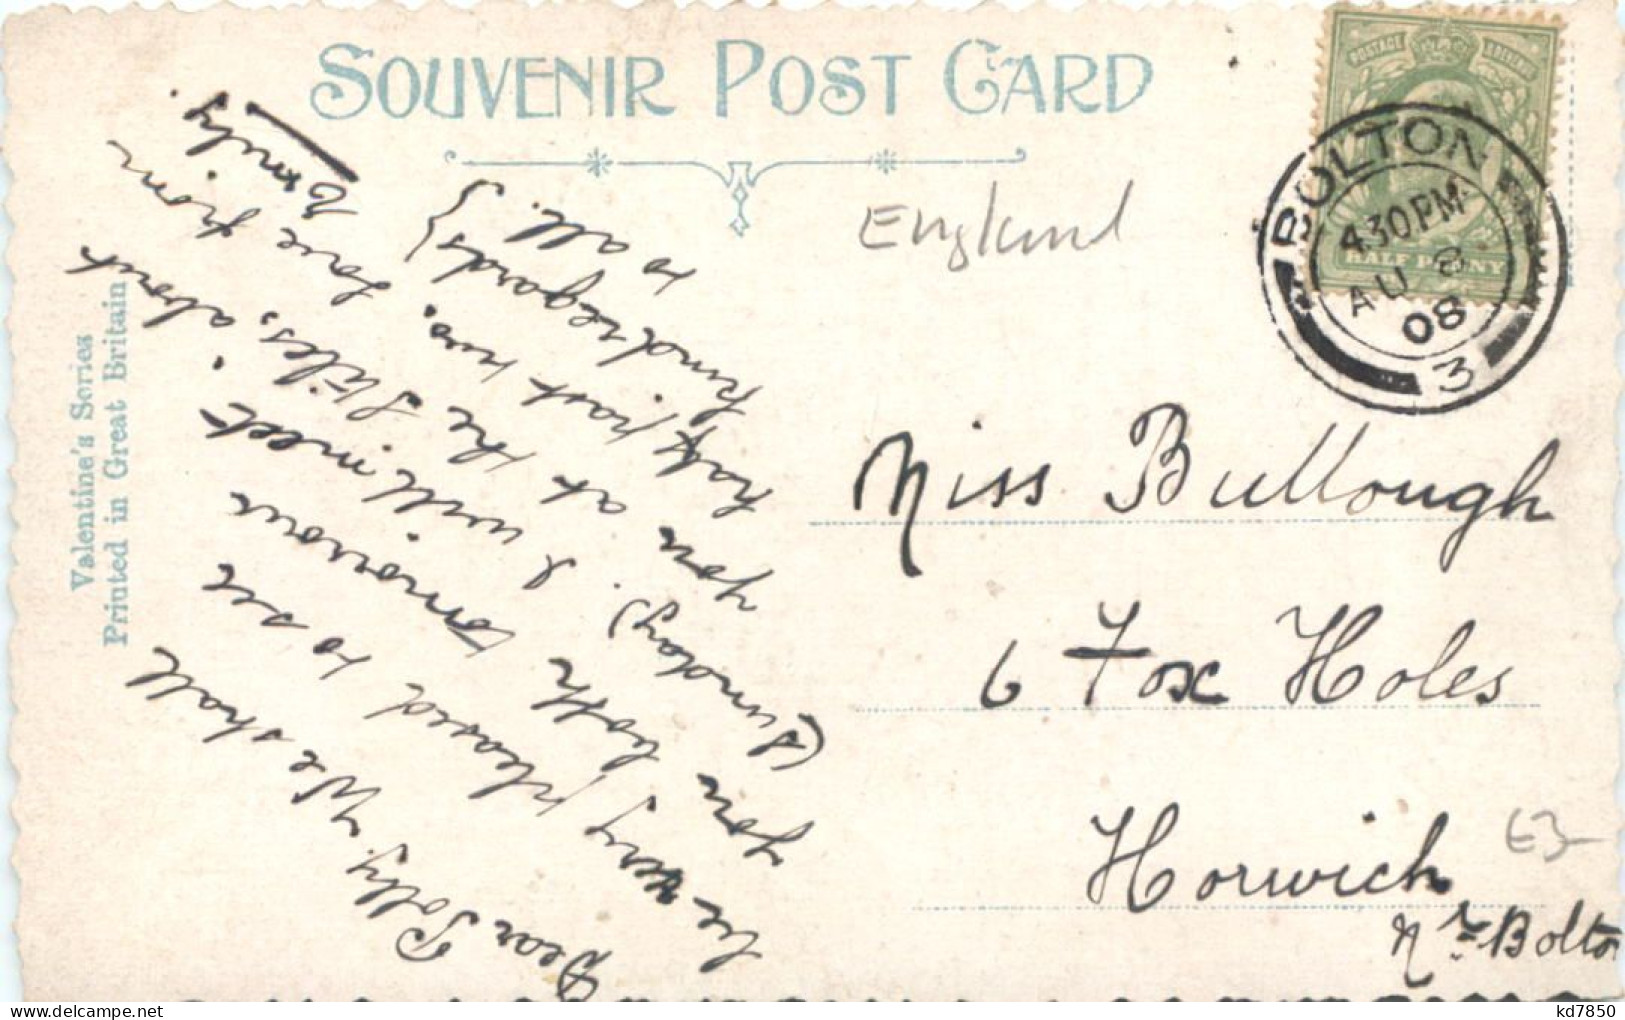 SOUVENIR POST CARD
Valentine's Series
Printed in Great Britain
POSTAGE & REVENUE
HALF PENNY
BOLTON
4.30PM
AU 8
08
3
England
Miss Bullough
6 Fox Holes
Horwich
Nr Bolton
£3-
Dear Polly. We shall
be very pleased to see
you both tomorrow
(Sunday). I will meet
you at the Stiles, about
half past two. Love from
kind regards} Emily.
to all.}
kd7850